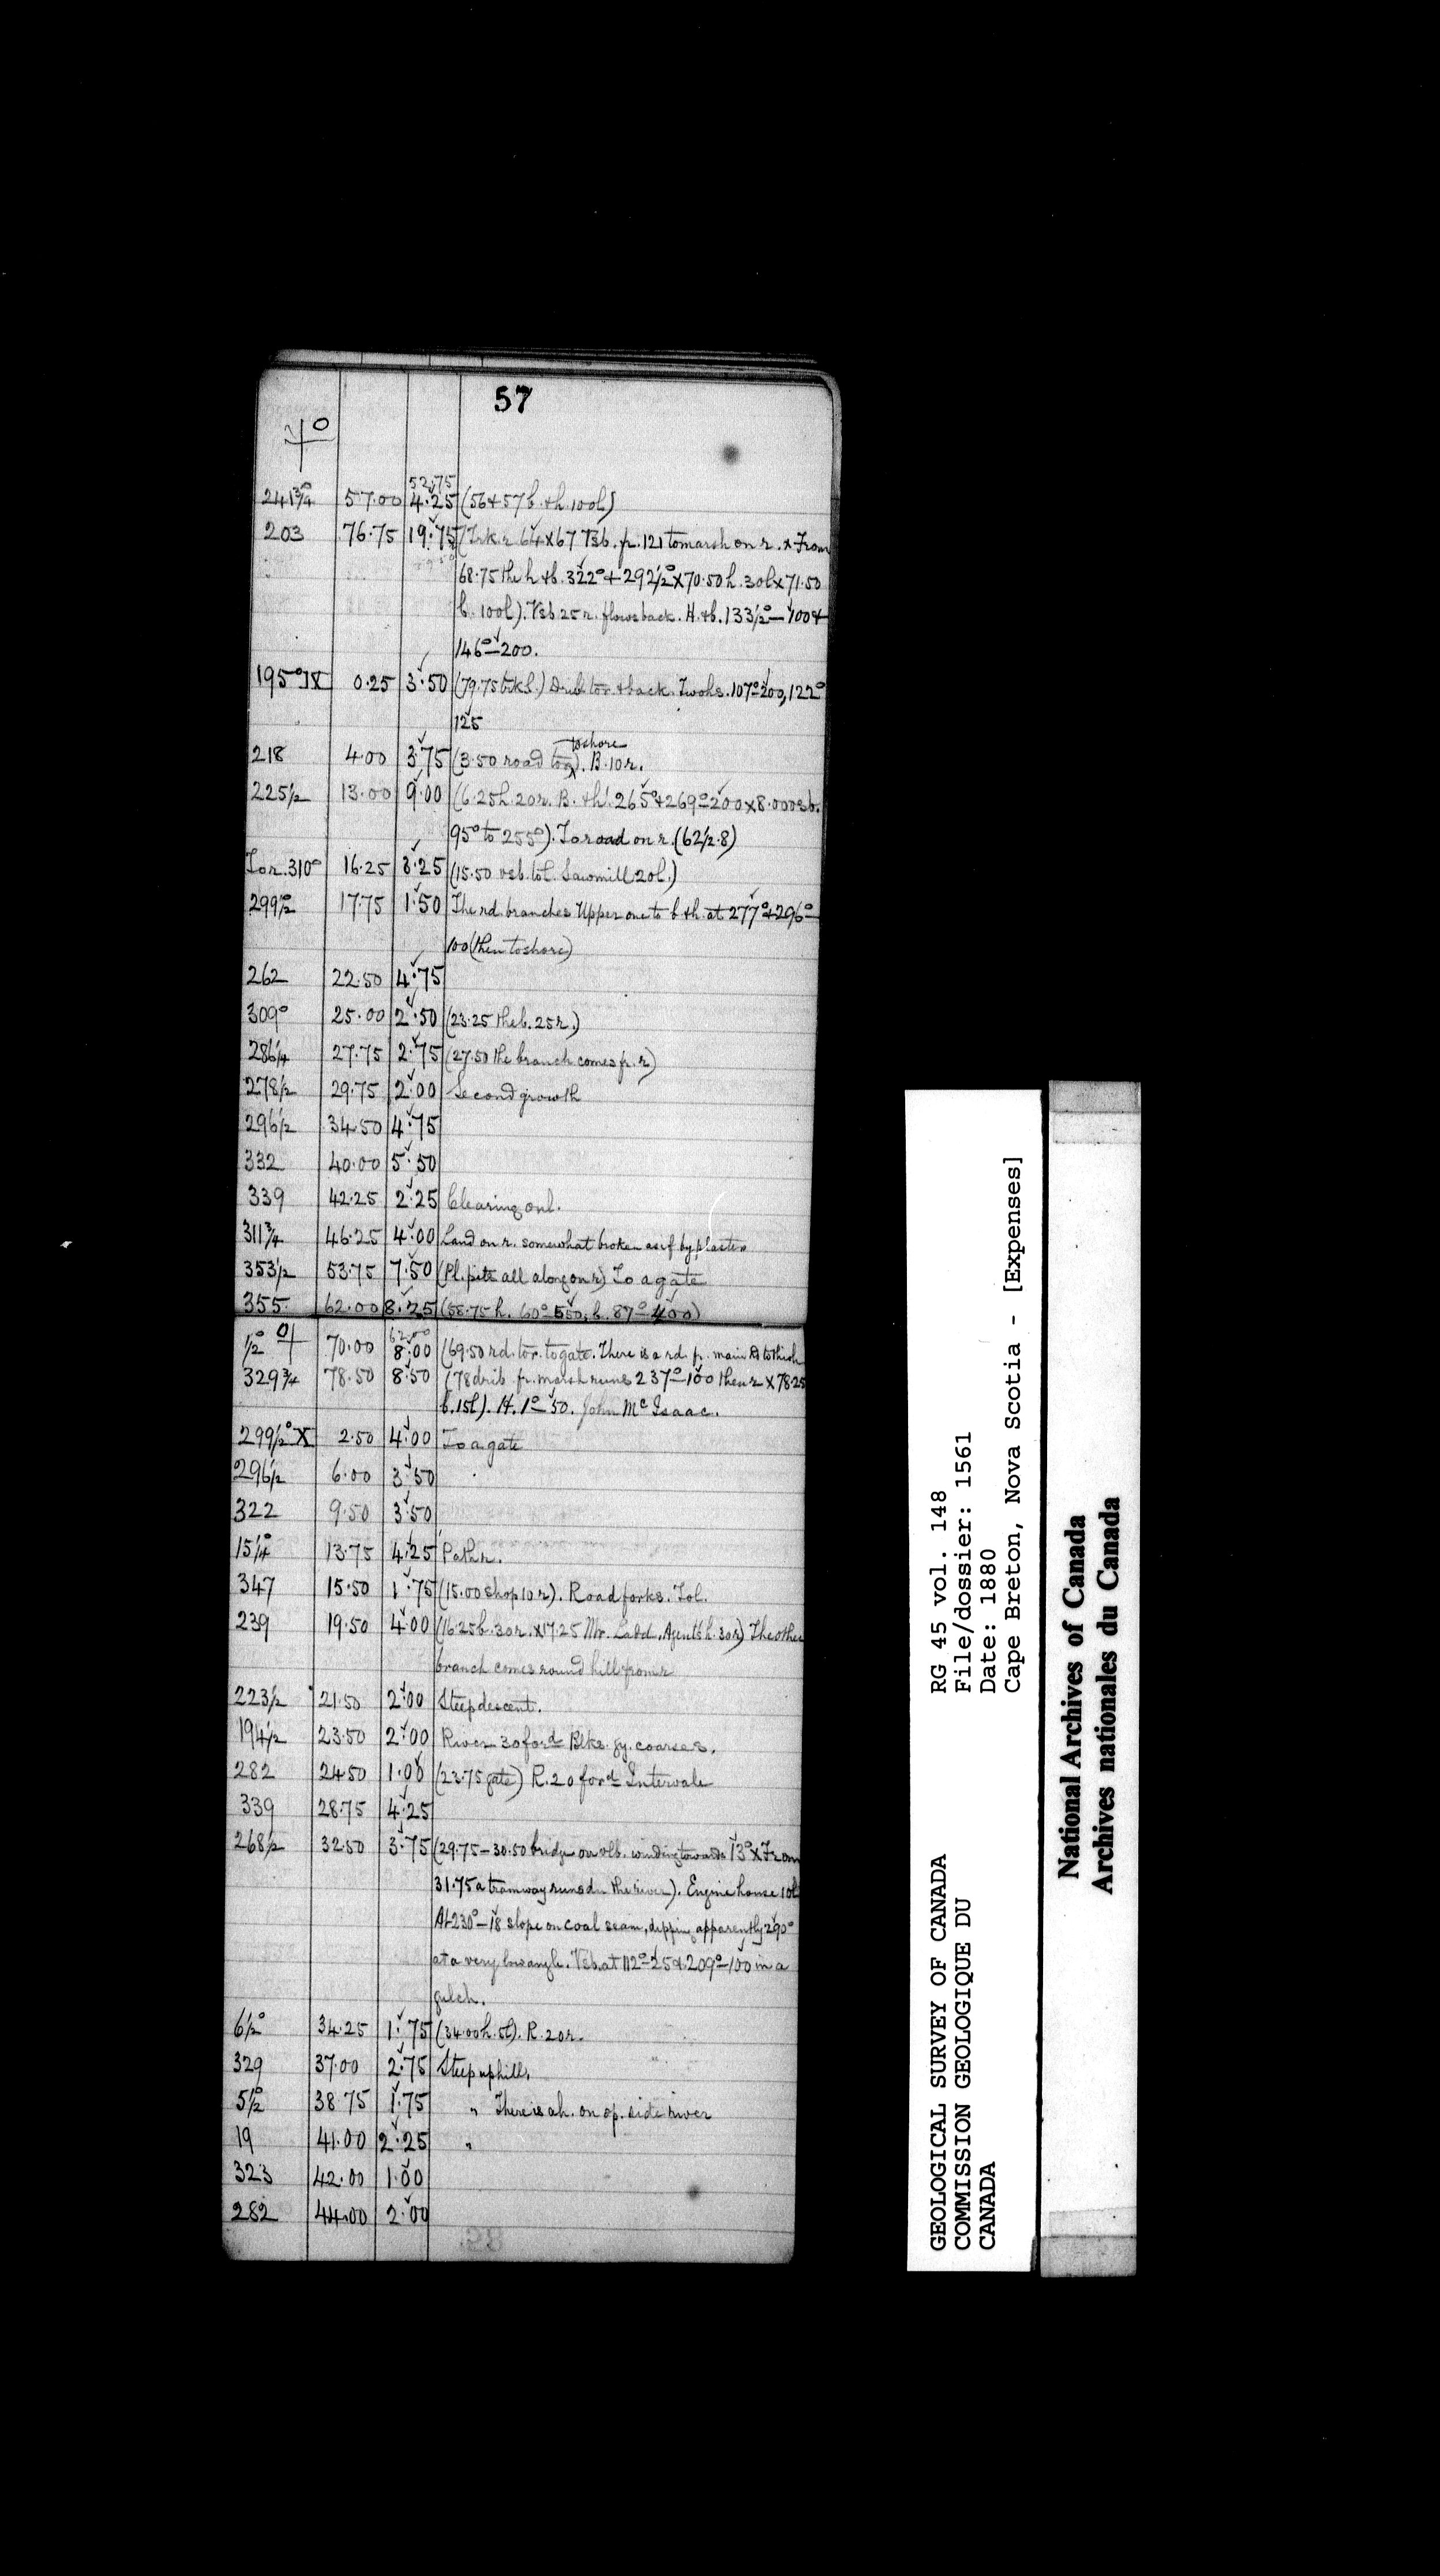 57
52.75
241¾° 57.00 4.25 (56+57 b. +h. 100l)
203 76.75 19.75 (Trk r. 64 x 67 Vsb. fr. 121 to marsh on r. x From
68.75 the h +b. 322° + 292½° x 70.50 h. 30l x 71.50
b. 100l). Vsb 25 r. flows back. H. +b. 133½° — 100 +
146° — 200.
195° ]X 0.25 3.50 (79.75 trk l.) to r. + back. Two hs. 107° 200, 122°
125
to shore
218 4.00 3.75 (3.50 road to r). B. 10 r.
225½ 13.00 9.00 (6.25 h. 20 r. B. +h. 265° + 269° — 200 x 8.00 vsb.
95° to 255°). To road on r. (62½.8)
To r. 310° 16.25 3.25 (15.50 vsb. to l. Sawmill 20l.)
299½° 17.75 1.50 The rd. branches Upper one to b +h. at 277° + 296° —
100 (then to shore)
262 22.50 4.75
309° 25.00 2.50 (23.25 the b. 25 r.)
286¼ 27.75 2.75 (27.50 the branch comes fr. r)
278½ 29.75 2.00 Second growth
296½ 34.50 4.75
332 40.00 5.50
339 42.25 2.25 Clearing on l.
311¾ 46.25 4.00 Land on r. somewhat broken as if by plaster
353½ 53.75 7.50 (Pl. pits all along on r) To a gate
355 62.00 8.25 (58.75 h. 60° — 550, b. 87° — 400)
62.00
½° 70.00 8.00 (69.50 rd. to r. to gate. There is a rd. fr. main Rd to this h
329¾ 78.50 8.50 (78 drib fr. marsh runs 237° — 100 then r x 78.25
b. 15l). H. 1° — 50. John McIsaac.
299½° X 2.50 4.00 To a gate
296½ 6.00 3.50
322 9.50 3.50
15¼° 13.75 4.25 Path r.
347 15.50 1.75 (15.00 shop 10 r). Road forks. To l.
239 19.50 4.00 (16.25 b. 30 r. x 17.25 Mr. Ladd, Agent's h. 30 r) The other
branch comes round hill from r
223½ 21.50 2.00 Steep descent.
194½ 23.50 2.00 River 30 ford Blks. gy. coarse s.
282 24.50 1.00 (23.75 gate) R. 20 ford Intervale
339 28.75 4.25
268½ 32.50 3.75 (29.75 — 30.50 bridge over vlb. winding towards 13° x From
31.75 a tramway runs dn the river). Engine house 10l
At 230° — 18 slope on coal seam, dipping apparently 290°
at a very low angle. Vsb. at 112° — 25 + 209° — 100 in a
gulch.
6½° 34.25 1.75 (34.00 h. 5l). R. 20 r.
329 37.00 2.75 Steep uphill.
5½° 38.75 1.75 " There is a h. on op. side river
19 41.00 2.25 "
323 42.00 1.00
282 44.00 2.00
GEOLOGICAL SURVEY OF CANADA
COMMISSION GEOLOGIQUE DU
CANADA
RG 45 vol. 148
File/dossier: 1561
Date: 1880
Cape Breton, Nova Scotia - [Expenses]
National Archives of Canada
Archives nationales du Canada